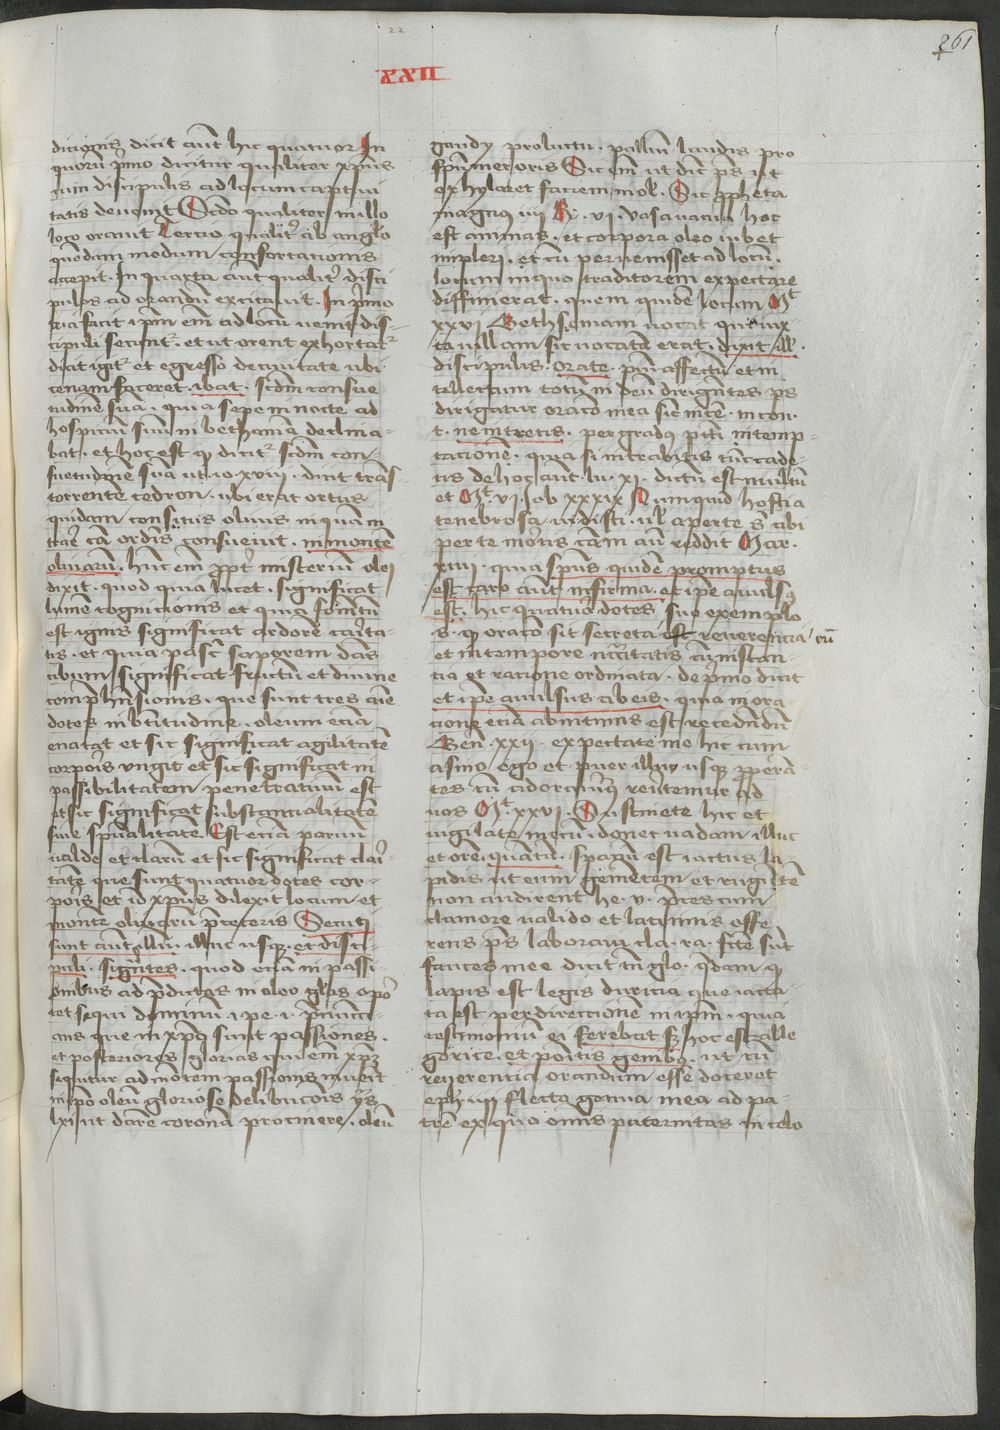 22
261
XXII
dicionis dicit aut hic quatuor In
quorum primo dicitur qualiter xpus
cum discipulis ad locum captiui
tatis deuenit Scdo qualiter in illo
loco orauit Tercio qualiter ab anglo
quendam modum confortationis
accepit. In quarta aut qualiter disci
pulos ad orandum excitauit. In primo
tria facit ipm em ad locum uenit dis-
cipuli secunt. et ut orent exhortat
dicit igit et egresso de ciuitate ubi
cenam faceret. ibat. scdm consue
tudinem sua. quia sepe in nocte ad
hospitium suum in bethania declina
bat. et hoc est qd dicit scdm con
suetudinem sua ut io. xviii. dicit trans
torrente cedron. ubi erat ortus
quidam consitus oliuis in quam in
trare cum ordis consueuit. in montem
oliuarum. hunc em propter misterium olei
dixit. quod quia lucet. significat
lumen cognicionis et quia fomentum
est ignis significat ardorem carita-
tis. et quia pascit saporem dans
cibum significat fructum et diuine
comprehensionis. que sunt tres anime
dotes in btitudine. oleum etiam
enatat et sic significat agilitatem
corporis ungit et sic significat in
passibilitatem penetratiuum est
et sic significat substancialitatem
siue spualitate. Est etiam parum
ualde et clarum et sic significat clari-
tatem que sunt quatuor dotes cor-
poris et id xpus dilexit locum et
montem oliuarum pre ceteris Secuti
sunt aut illum. illuc usque. et disci
puli. sequentes. quod etiam in passi
onibus ad predictas in oleo glas opor
tet sequi dominum i pe. i. prenunci
ans que in xpo sunt passiones.
et posteriores glorias qui em xpm
sequitur ad montem passionis inuenit
in ipo oleum gloriose
lxi ut darem coronam pro cinere. oleum
gaudii pro luctu. pallium laudis pro
spu meroris Sicem ut dicit ps ut
exhylaret faciem in ol. Sic propheta
magnus iiii R. vi. vasa uacua hoc
est animas. et corpora oleo iubet
impleri. et cum peruenisset ad locum.
locum in quo traditorem expectare
diffinierat. quem quidem locum Mt
xxvi Gethsemani uocat qui iux
ta uillam sic uocatam erat. dixit ill.
discipulis. Orate. pium affectum et in
tellectum totum in deum dirigentes ps
dirigatur oratio mea sic incen. in con
t. ne intretis. per gradus peccati in temp-
tacionem. quia si intrabitis cade-
tis de hoc aut lu. xi. dictum est multum
et Mt. vi. Iob xxxix Numquid hostia
tenebrosa uidisti. ul aperte s tibi
porte mortis cam aut reddit Mar.
xiiii. quia spus quidem promptus
est caro aut infirma. et ipe auulsus
est. hic quatuor dotes suo exemplo
.s. qd oratio sit secreta est reuerencia cum
et in tempore necessitatis cum instan-
tia et ratione ordinata. de primo dicit
et ipe auulsus ab eis. quia in ora
cione etiam ab intimis est recedendum
Gen. xxii. expectate me hic cum
asino. ego et puer illuc usque propera
tes cum adorauimus reuertemur ad
uos Mt. xxvi. Sustinete hic et
uigilate mecum. donec uadam illuc
et orem. quantum. spacium est iactus la
pidis ut eum gementem et rugientem
non audirent he. v. preces cum
clamore ualido et lacrimis offe
rens ps laboraui cla. ra. facte sunt
fauces mee dicit tn glo. quedam qd
lapis est legis duricia que iacta
ta est per directionem in ipm. quia
testimonium ei ferebat sed hoc est alle
gorice. et positis genibus. ut cum
reuerentia orandum esse doceret
eph. iii flecto genua mea ad pa-
trem ex quo omnis paternitas in celo